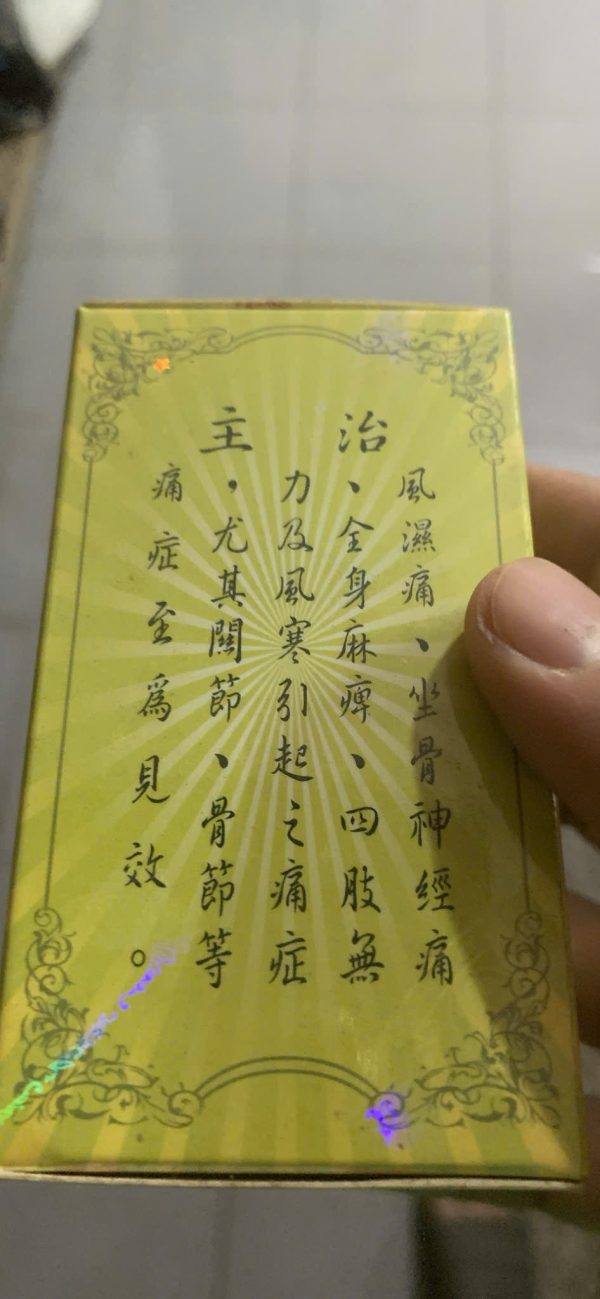 主治
風濕痛、坐骨神經痛
、全身麻痺、四肢無
力及風寒引起之痛症
，尤其關節、骨節等
痛症至為見效。